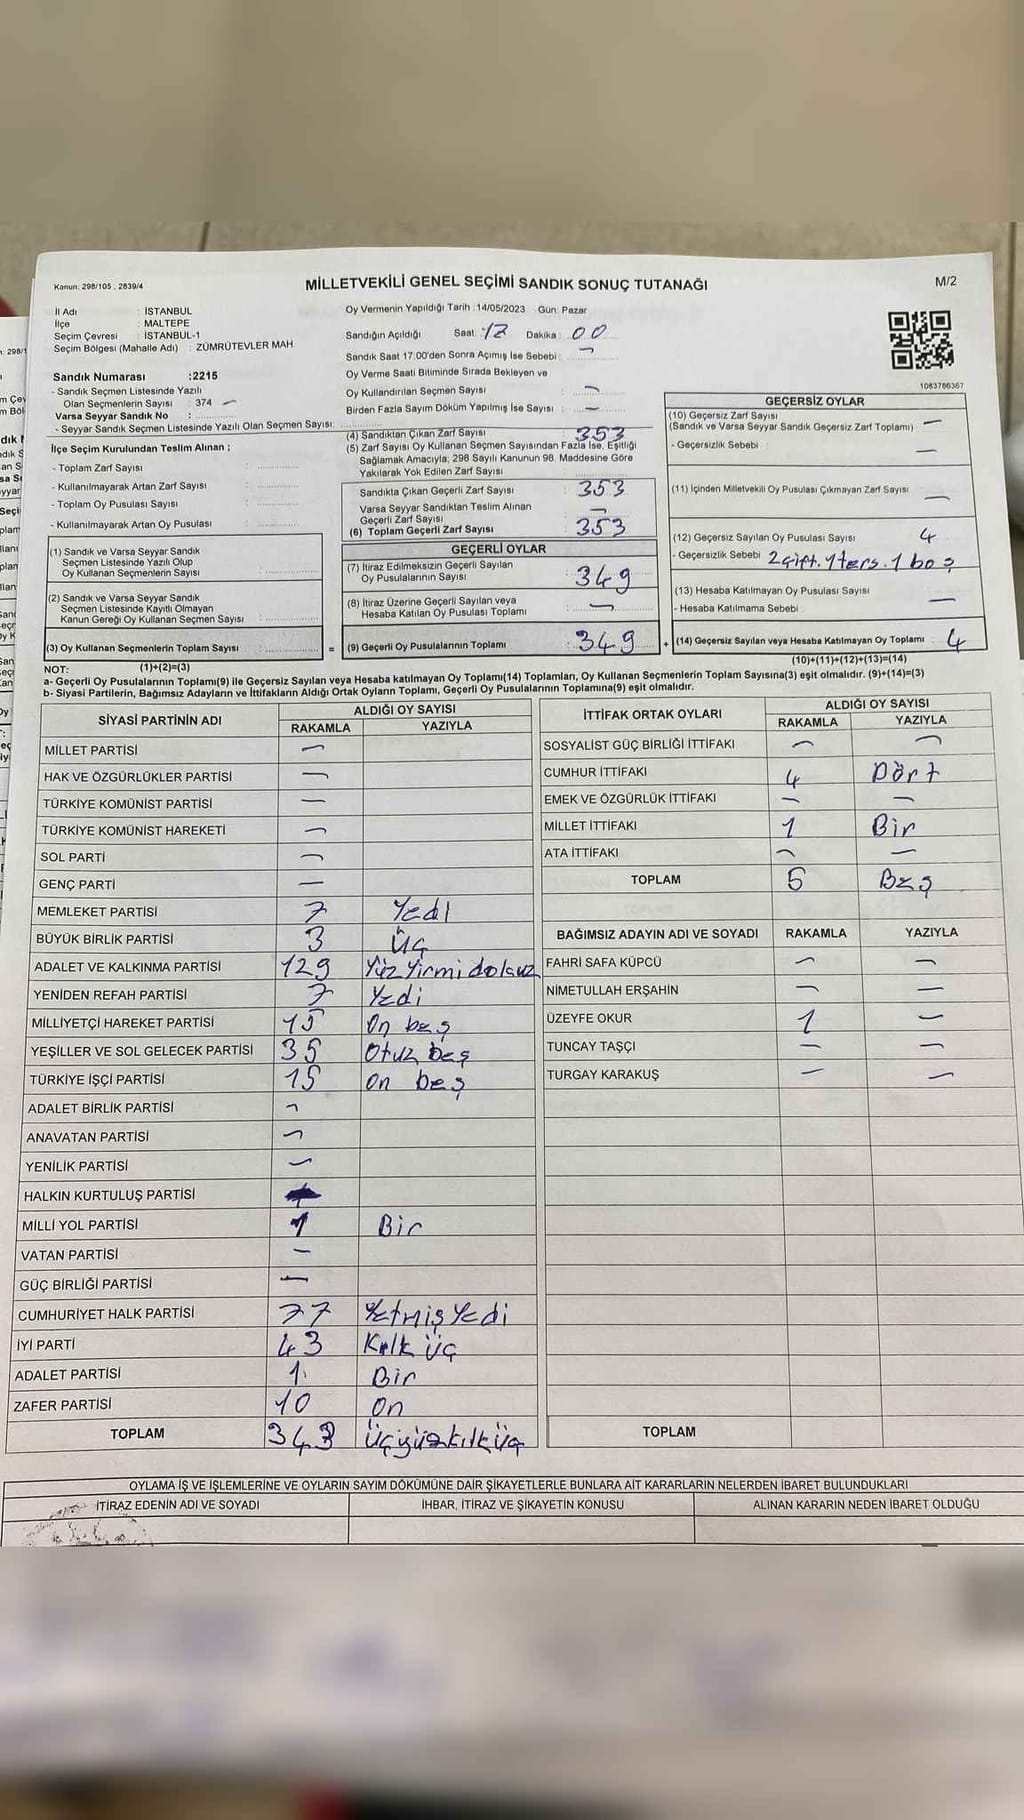 Kanun: 298/105 , 2839/4
MİLLETVEKİLİ GENEL SEÇİMİ SANDIK SONUÇ TUTANAĞI
M/2
İl Adı : İSTANBUL
İlçe : MALTEPE
Seçim Çevresi : İSTANBUL-1
Seçim Bölgesi (Mahalle Adı) : ZÜMRÜTEVLER MAH
Sandık Numarası :2215
- Sandık Seçmen Listesinde Yazılı
Olan Seçmenlerin Sayısı : 374 -
Varsa Seyyar Sandık No :
- Seyyar Sandık Seçmen Listesinde Yazılı Olan Seçmen Sayısı:
Oy Vermenin Yapıldığı Tarih :14/05/2023 Gün: Pazar
Sandığın Açıldığı Saat: 17 Dakika : 00
Sandık Saat 17:00'den Sonra Açımış İse Sebebi : -
Oy Verme Saati Bitiminde Sırada Bekleyen ve
Oy Kullandırılan Seçmen Sayısı : -
Birden Fazla Sayım Döküm Yapılmış İse Sayısı : -
1063786367
İlçe Seçim Kurulundan Teslim Alınan ;
- Toplam Zarf Sayısı :
- Kullanılmayarak Artan Zarf Sayısı :
- Toplam Oy Pusulası Sayısı :
- Kullanılmayarak Artan Oy Pusulası :
(1) Sandık ve Varsa Seyyar Sandık
Seçmen Listesinde Yazılı Olup
Oy Kullanan Seçmenlerin Sayısı :
(2) Sandık ve Varsa Seyyar Sandık
Seçmen Listesinde Kayıtlı Olmayan
Kanun Gereği Oy Kullanan Seçmen Sayısı :
(3) Oy Kullanan Seçmenlerin Toplam Sayısı :
(4) Sandıktan Çıkan Zarf Sayısı : 353
(5) Zarf Sayısı Oy Kullanan Seçmen Sayısından Fazla İse, Eşitliği
Sağlamak Amacıyla; 298 Sayılı Kanunun 98. Maddesine Göre
Yakılarak Yok Edilen Zarf Sayısı :
Sandıkta Çıkan Geçerli Zarf Sayısı : 353
Varsa Seyyar Sandıktan Teslim Alınan
Geçerli Zarf Sayısı : -
(6) Toplam Geçerli Zarf Sayısı : 353
GEÇERLİ OYLAR
(7) İtiraz Edilmeksizin Geçerli Sayılan
Oy Pusulalarının Sayısı : 349
(8) İtiraz Üzerine Geçerli Sayılan veya
Hesaba Katılan Oy Pusulası Toplamı : -
= (9) Geçerli Oy Pusulalarının Toplamı : 349 +
GEÇERSİZ OYLAR
(10) Geçersiz Zarf Sayısı
(Sandık ve Varsa Seyyar Sandık Geçersiz Zarf Toplamı) : -
- Geçersizlik Sebebi : -
(11) İçinden Milletvekili Oy Pusulası Çıkmayan Zarf Sayısı -
(12) Geçersiz Sayılan Oy Pusulası Sayısı : 4
- Geçersizlik Sebebi : 2 çift. 1 ters. 1 boş
(13) Hesaba Katılmayan Oy Pusulası Sayısı : -
- Hesaba Katılmama Sebebi :
(14) Geçersiz Sayılan veya Hesaba Katılmayan Oy Toplamı 4
NOT: (1)+(2)=(3)
(10)+(11)+(12)+(13)=(14)
a- Geçerli Oy Pusulalarının Toplamı(9) ile Geçersiz Sayılan veya Hesaba katılmayan Oy Toplamı(14) Toplamları, Oy Kullanan Seçmenlerin Toplam Sayısına(3) eşit olmalıdır. (9)+(14)=(3)
b- Siyasi Partilerin, Bağımsız Adayların ve İttifakların Aldığı Ortak Oyların Toplamı, Geçerli Oy Pusulalarının Toplamına(9) eşit olmalıdır.
SİYASİ PARTİNİN ADI ALDIĞI OY SAYISI
RAKAMLA YAZIYLA
MİLLET PARTİSİ -
HAK VE ÖZGÜRLÜKLER PARTİSİ -
TÜRKİYE KOMÜNİST PARTİSİ -
TÜRKİYE KOMÜNİST HAREKETİ -
SOL PARTİ -
GENÇ PARTİ -
MEMLEKET PARTİSİ 7 Yedi
BÜYÜK BİRLİK PARTİSİ 3 Üç
ADALET VE KALKINMA PARTİSİ 129 Yüzyirmidokuz
YENİDEN REFAH PARTİSİ 7 Yedi
MİLLİYETÇİ HAREKET PARTİSİ 15 On beş
YEŞİLLER VE SOL GELECEK PARTİSİ 35 Otuz beş
TÜRKİYE İŞÇİ PARTİSİ 15 on beş
ADALET BİRLİK PARTİSİ -
ANAVATAN PARTİSİ -
YENİLİK PARTİSİ -
HALKIN KURTULUŞ PARTİSİ
MİLLİ YOL PARTİSİ 1 Bir
VATAN PARTİSİ -
GÜÇ BİRLİĞİ PARTİSİ -
CUMHURİYET HALK PARTİSİ 77 Yetmiş Yedi
İYİ PARTİ 43 Kırk üç
ADALET PARTİSİ 1 Bir
ZAFER PARTİSİ 10 On
TOPLAM 343 Üçyüzkırküç
İTTİFAK ORTAK OYLARI ALDIĞI OY SAYISI
RAKAMLA YAZIYLA
SOSYALİST GÜÇ BİRLİĞİ İTTİFAKI - -
CUMHUR İTTİFAKI 4 Dört
EMEK VE ÖZGÜRLÜK İTTİFAKI - -
MİLLET İTTİFAKI 1 Bir
ATA İTTİFAKI - -
TOPLAM 5 Beş
BAĞIMSIZ ADAYIN ADI VE SOYADI RAKAMLA YAZIYLA
FAHRİ SAFA KÜPCÜ - -
NİMETULLAH ERŞAHİN - -
ÜZEYFE OKUR 1 -
TUNCAY TAŞÇI - -
TURGAY KARAKUŞ - -
TOPLAM
OYLAMA İŞ VE İŞLEMLERİNE VE OYLARIN SAYIM DÖKÜMÜNE DAİR ŞİKAYETLERLE BUNLARA AİT KARARLARIN NELERDEN İBARET BULUNDUKLARI
İTİRAZ EDENİN ADI VE SOYADI İHBAR, İTİRAZ VE ŞİKAYETİN KONUSU ALINAN KARARIN NEDEN İBARET OLDUĞU